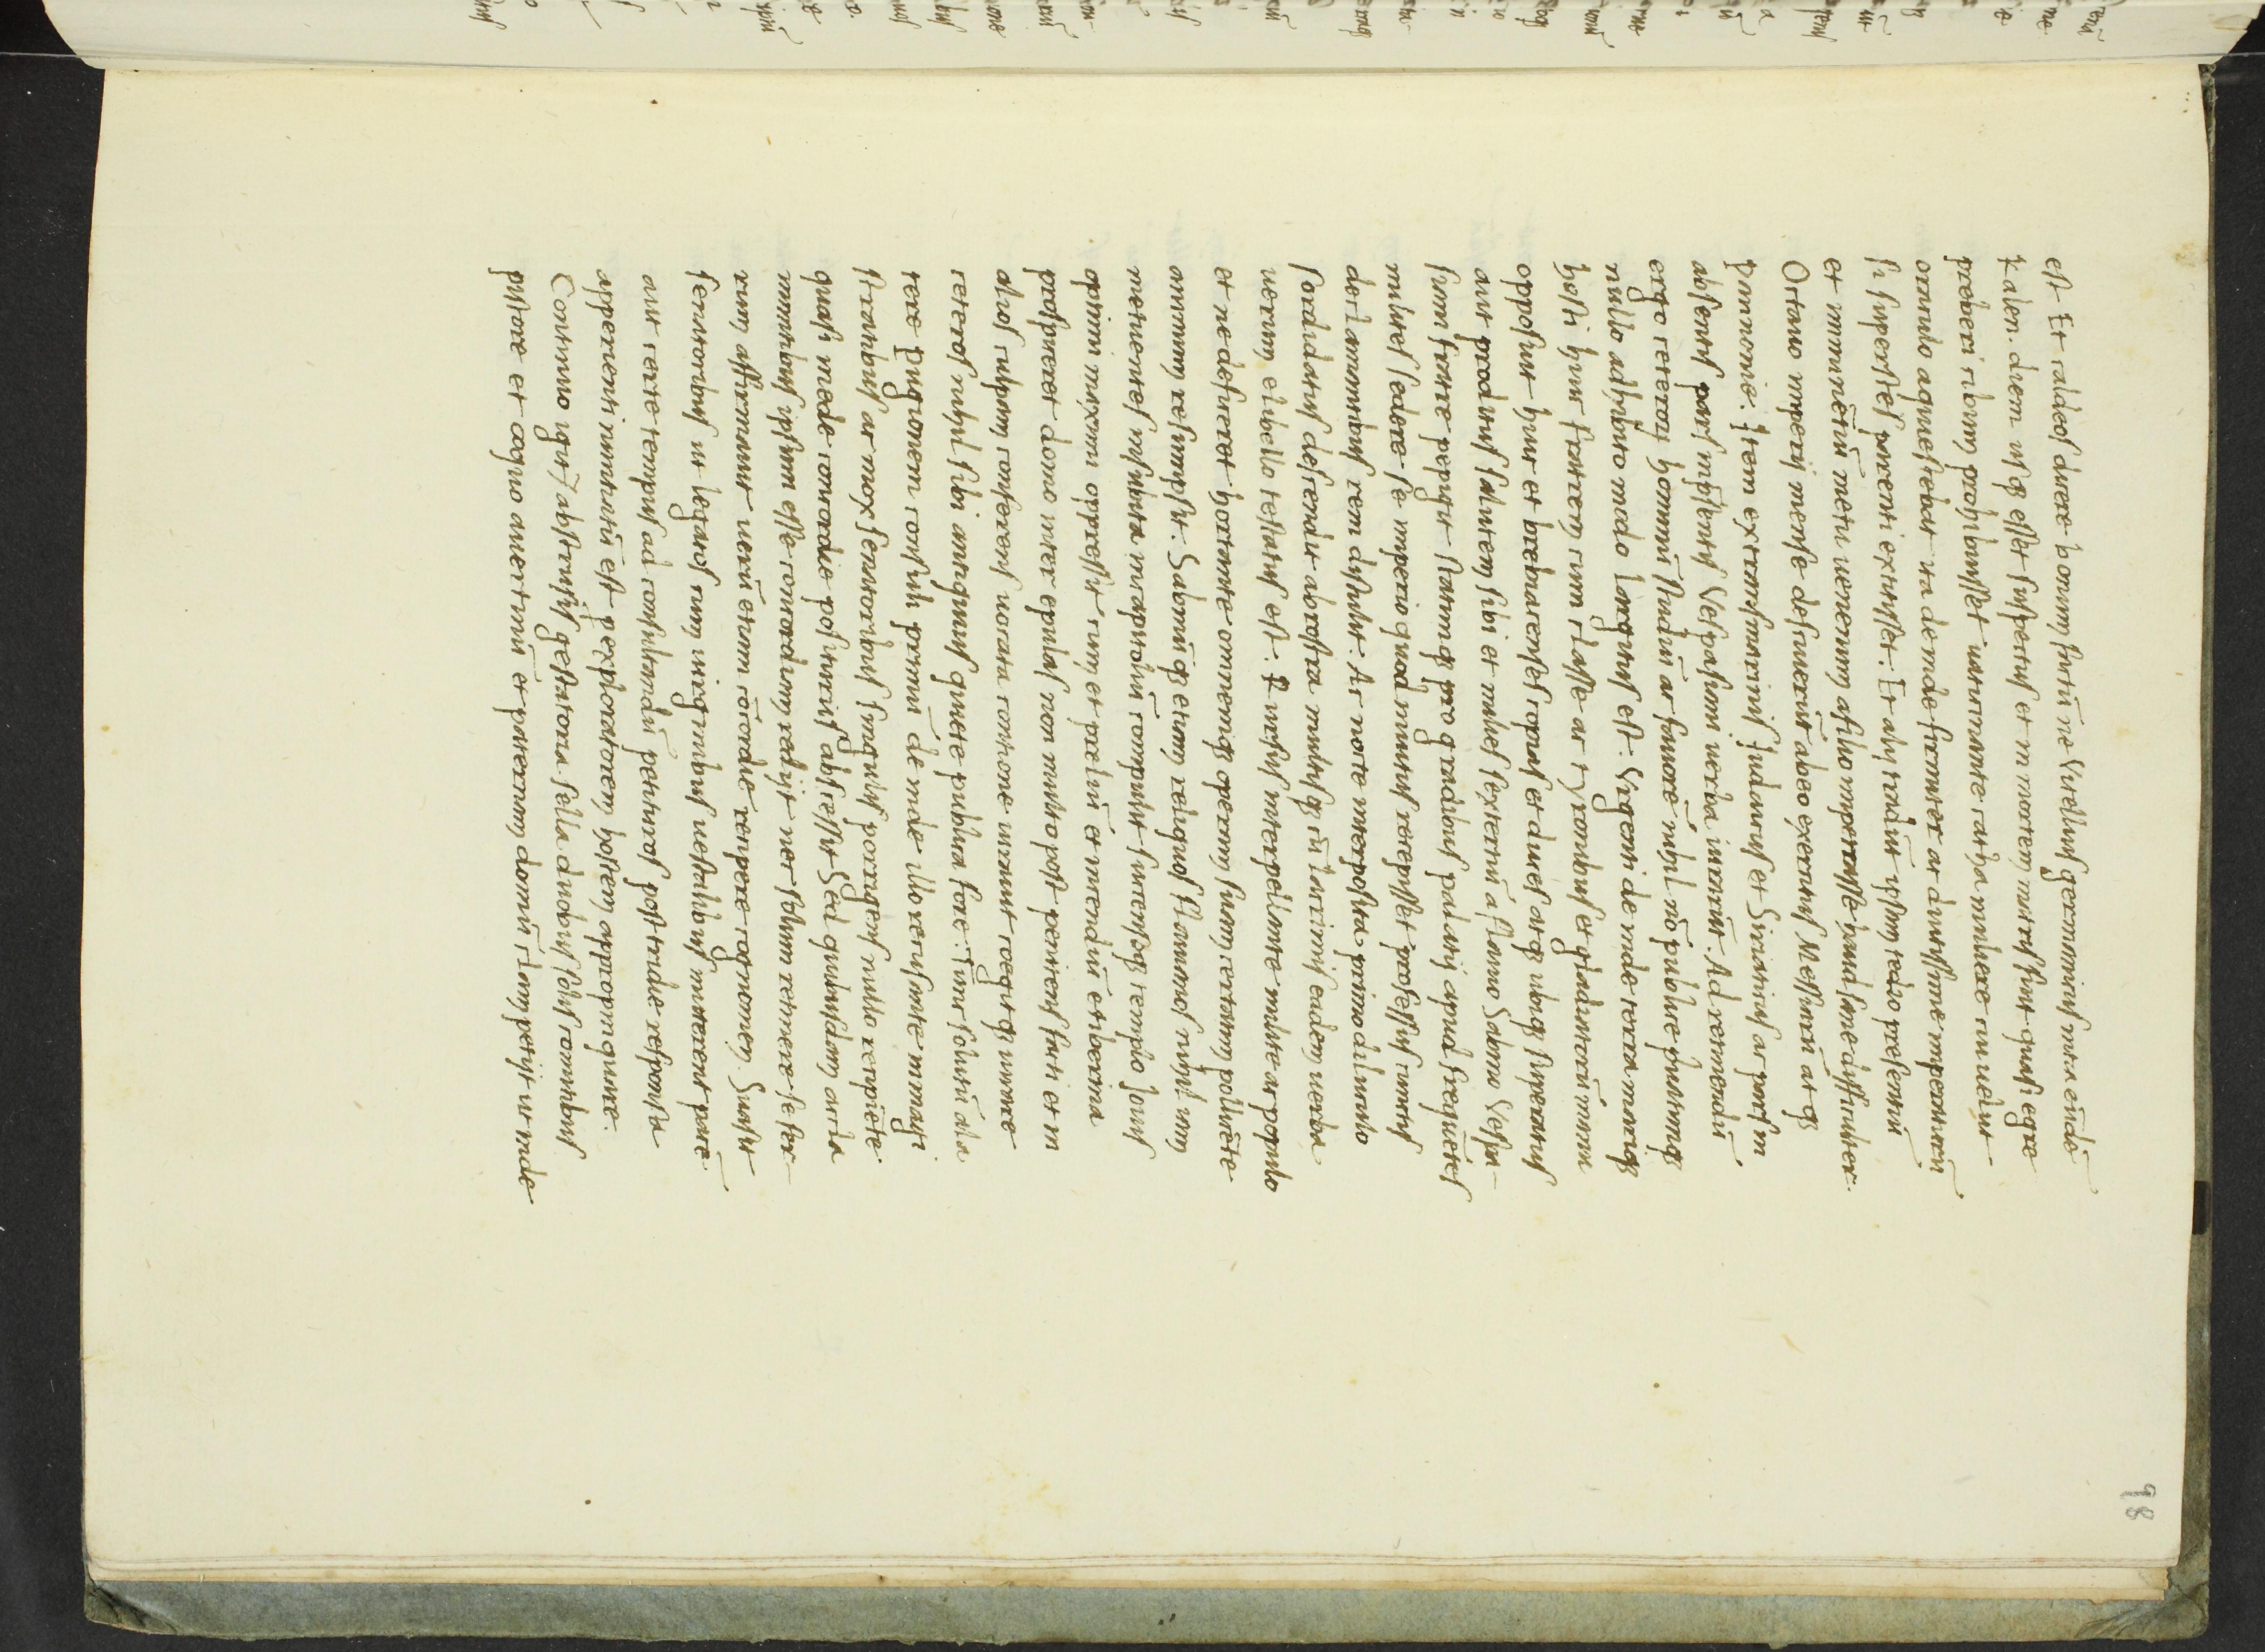 98
est. Et caldeos dicere bonum factū ne Vitellius germanicus intra eūdē
kalen. diem usqꝫ esset suspectus et in mortem matris fuit quasi egre
preberi cibum prohibuisset uaticinante catha muliere cui uelut
oraculo aquiescebat ita demum firmiter ac diutissime imperaturū
si superstes parenti extitisset. Et alij tradūt ipsam tedio presentiū
et imminētiū metu uenenum a filio impetrasse haud sane difficulter.
Octauo imperij mense desciuerūt ab eo exercitus Messiarū atqꝫ
pannonie. Item ex transmarinis Judaicus et Siriaticus ac pars in
absentis pars in pn̄sentis Vespasiani uerba iurarūt. Ad retinendū
ergo ceterorꝫ hominū studiū ac fauorē nihil nō publice priuatimqꝫ
nullo adhibito modo largitus est. Vrgenti deinde terra mariqꝫ
hosti hinc fratrem cum classe ac tyronibus et gladiatorū manu
opposuit hinc et bebriacenses copias et duces atqꝫ ubiqꝫ superatus
aut proditus salutem sibi et milies sextertiū a flauio Sabino Vespa-
siani fratre pepigit statimqꝫ pro gradibus palatij apud frequētes
milites cedere se imperio quod inuitus recepisset professus cunctis
reclamantibus rem distulit. Ac nocte interposita primo diluculo
sordidatus descendit ad rostra multisqꝫ cū lacrimis eadem uerba
uerum e libello testatus est. Rursus interpellante milite ac populo
et ne deficeret hortante omnemqꝫ operam suam certatim pollicēte
animum resumpsit. Sabinūqꝫ etiam reliquos flauianos nihil iam
metuentes ui subita in capitoliū compulit succensoqꝫ templo Jouis
optimi maximi oppressit cum et preliū et incendiū e tiberina
prospiceret domo inter epulas non multo post penitens facti et in
alios culpam conferens uocata contione iurauit coegitqꝫ iurare
ceteros nihil sibi antiquius quiete publica fore. Tunc solutū a la
tere pugionem consuli primū deinde illo recusante magi
stratibus ac mox senatoribus singulis porrigens nullo recipiēte
quasi in ede concordie positurus abscessit. Sed quibusdam accla
mantibus ipsum esse concordiam redijt nec solum retinere se fer-
rum affirmauit uerū etiam cōcordie recipere cognomen. Suasit
senatoribus ut legatos cum uirginibus uestalibus mitterent pacē
aut certe tempus ad consultandū petituros postridie responsa
opperienti nuntiatū est per exploratorem hostem appropinquare.
Continuo igit᷑ abstrusus gestatoria sella duobus solis comitibus
pistore et coquo auertinū et paternam domū clam petijt ut inde